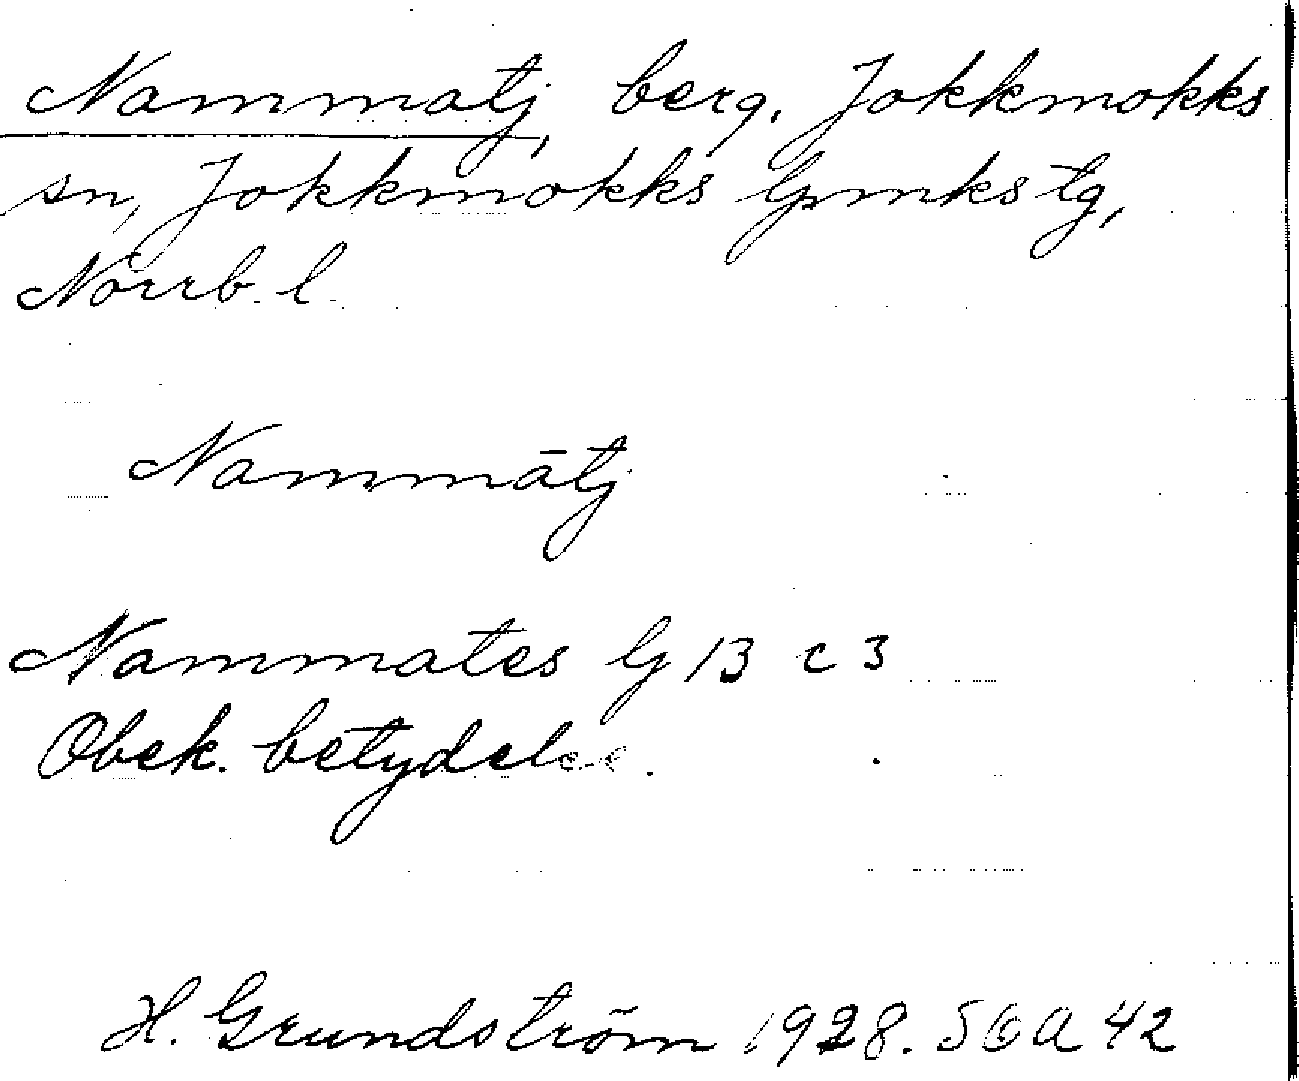 Nammatj, berg. Jokkmokks
sn, Jokkmokks lpmkstg,
Norrb. l.
Nammātj
Nammates G 13 c 3
Obek. betydelse.
H. Grundström 1928. SOA 42